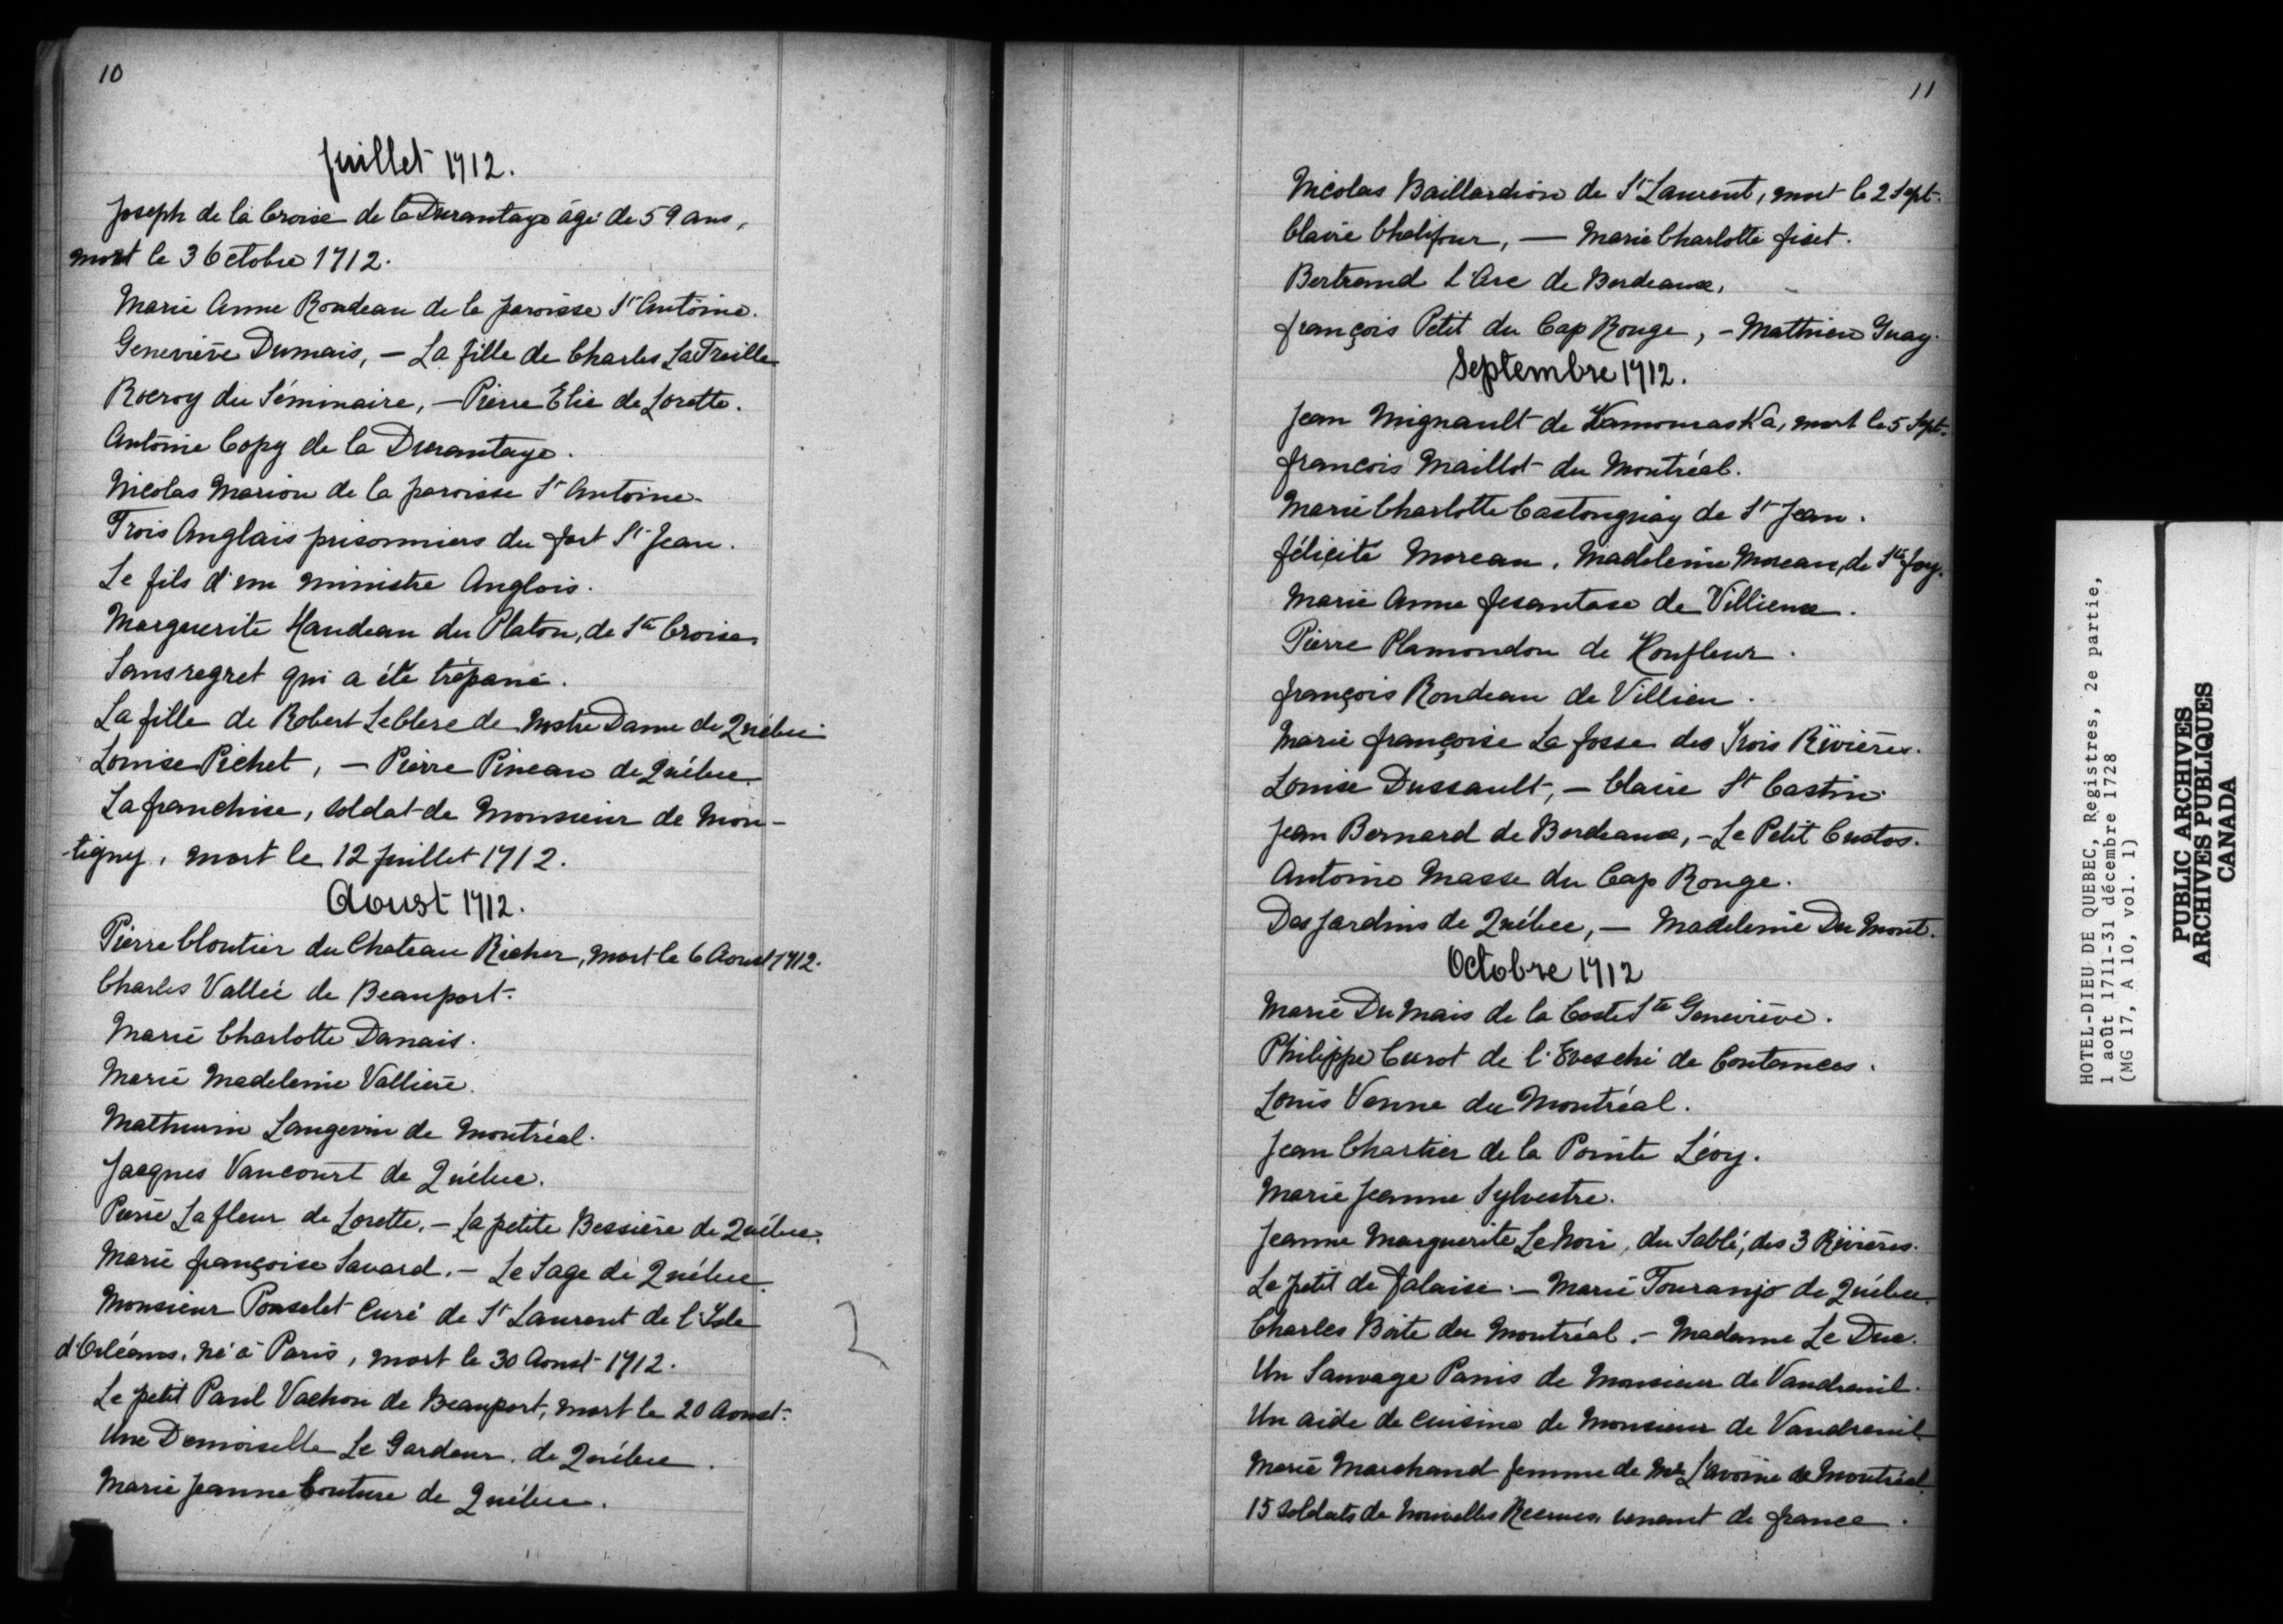 10
Juillet 1712.
Joseph de la Croix de la Durantaye âgé de 59 ans,
mort le 3 Octobre 1712.
Marie Anne Rondeau de la paroisse St Antoine.
Geneviève Dumais, — La fille de Charles LaTreille
Rocroy du Séminaire, — Pierre Elie de Lorette.
Antoine Copy de la Durantaye.
Nicolas Marion de la paroisse St Antoine.
Trois Anglais prisonniers du fort St Jean.
Le fils d'un ministre Anglois.
Marguerite Haudeau du Platon, de Ste Croix
Sansregret qui a été trépané.
La fille de Robert Leclerc de Nostre Dame de Québec
Louise Pichet, — Pierre Pineau de Québec
La franchise, soldat de Monsieur de Mon-
-tigny, mort le 12 Juillet 1712.
Aoust 1712.
Pierre Cloutier du Chateau Richer, mort le 6 Aoust 1712.
Charles Vallée de Beauport.
Marie Charlotte Danais.
Marie Madeleine Vallière.
Mathurin Langevin de Montréal.
Jacques Vancourt de Québec.
Pierre Lafleur de Lorette. — La petite Bessière de Québec.
Marie françoise Savard. — Le Sage de Québec
Monsieur Poncelet Curé de St Laurent de l'Isle
d'Orléans, né à Paris, mort le 30 Aoust 1712.
Le petit Paul Vachon de Beauport, mort le 20 Aoust.
Une Demoiselle Le Gardeur, de Québec.
Marie Jeanne Couture de Québec.
2
11
Nicolas Baillardion de St Laurent, mort le 2 Sept.
Claire Chalifour, — Marie Charlotte fiset.
Bertrand L'Arc de Bordeaux,
françois Petit du Cap Rouge, — Mathieu Guay.
Septembre 1712.
Jean Mignault de Kamouraska, mort le 5 Sept.
francois Maillot du Montréal.
Marie Charlotte Castonguay de St Jean.
félicité Moreau. Madeleine Moreau, de Ste foy.
Marie Anne de Villieux.
Pierre Plamondon de Honfleur.
françois Rondeau de Villieu.
Marie françoise La fosse des Trois Rivières.
Louise Dussault, — Claire St Castin.
Jean Bernard de Bordeaux, — Le Petit Custos.
Antoine Masse du Cap Rouge.
Des Jardins de Québec, — Madeleine Du Mont.
Octobre 1712
Marie Du Mais de la Coste Ste Geneviève.
Philippe Curot de l'Eveschi de Coutances.
Louis Venne du Montréal.
Jean Chartier de la Pointe Lévy.
Marie Jeanne Sylvestre.
Jeanne Marguerite Le Noir, du Sablé, des 3 Rivières.
Le petit de falaise. — Marie Touranjo de Québec.
Charles Boite du Montréal. — Madame Le Duc.
Un Sauvage Panis de Monsieur de Vaudreuil.
Un aide de cuisine de Monsieur de Vaudreuil
Marie Marchand femme de Mr L'avoine de Montréal.
15 soldats de nouvelles Recrues, venant de france.
HOTEL-DIEU DE QUEBEC, Registres, 2e partie,
1 août 1711-31 décembre 1728
(MG 17, A 10, vol. 1)
PUBLIC ARCHIVES
ARCHIVES PUBLIQUES
CANADA